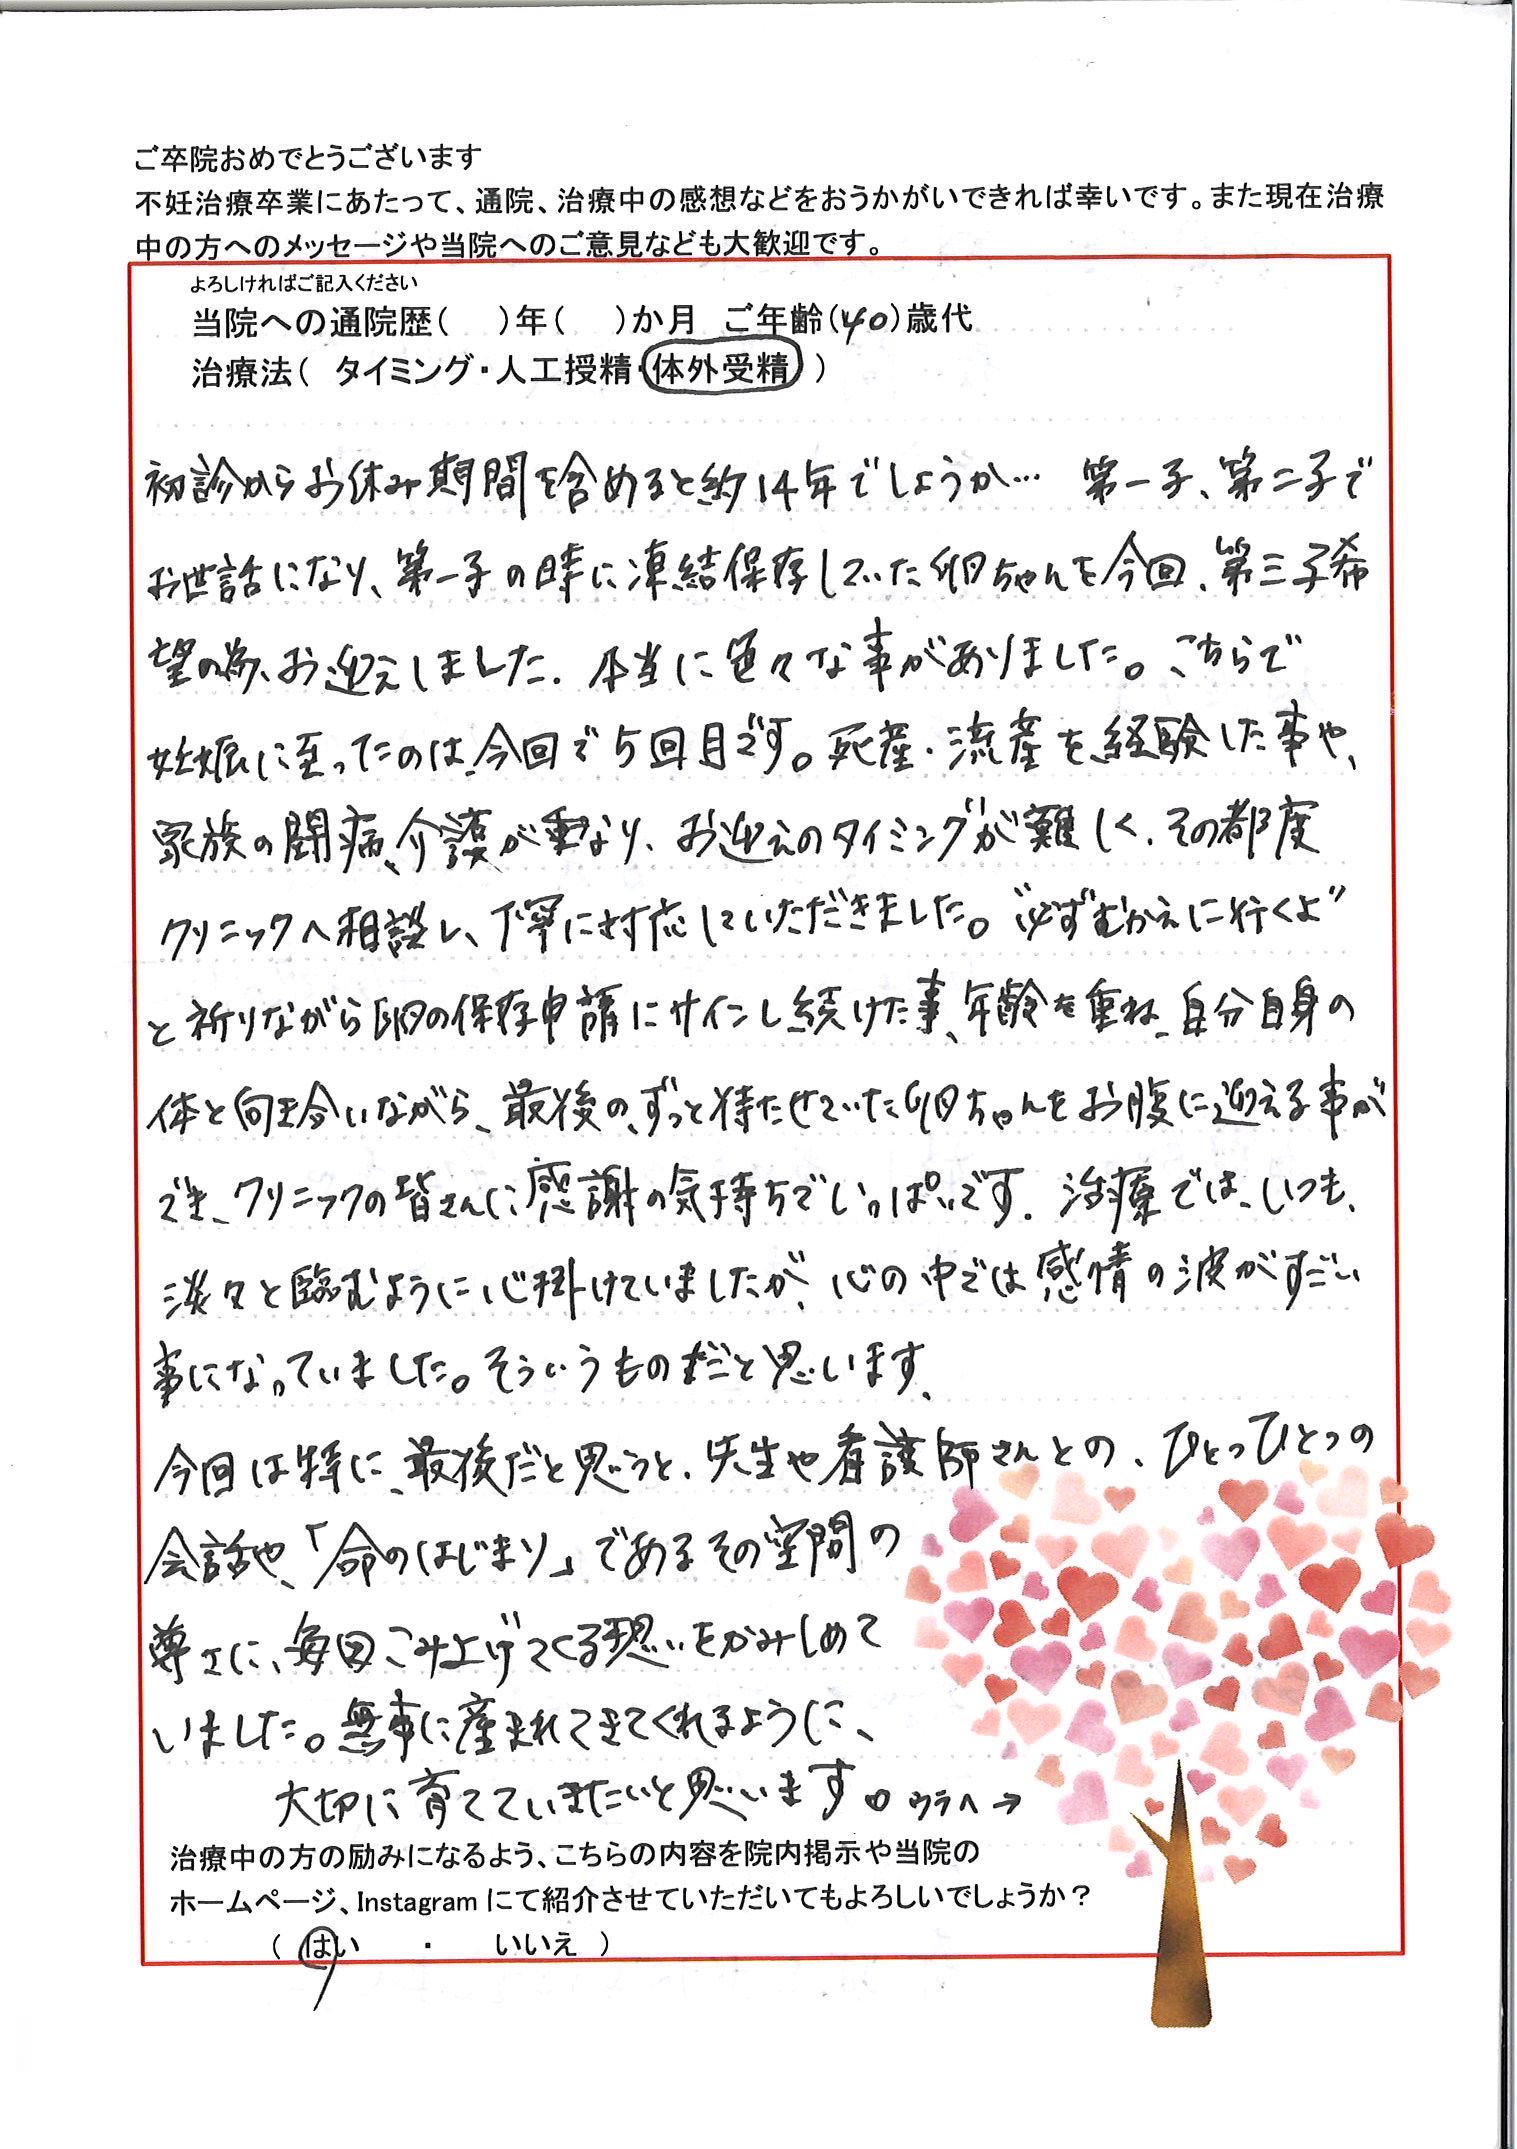 ご卒院おめでとうございます
不妊治療卒業にあたって、通院、治療中の感想などをおうかがいできれば幸いです。また現在治療
中の方へのメッセージや当院へのご意見なども大歓迎です。
よろしければご記入ください
当院への通院歴(　)年(　)か月　ご年齢(40)歳代
治療法(　タイミング・人工授精・体外受精　)
初診からお休み期間を含めると約14年でしょうか… 第一子、第二子で
お世話になり、第一子の時に凍結保存していた卵ちゃんを今回、第三子希
望の為、お迎えしました。本当に色々な事がありました。こちらで
妊娠に至ったのは、今回で5回目です。死産・流産を経験した事や、
家族の闘病、介護が重なり、お迎えのタイミングが難しく、その都度
クリニックへ相談し、丁寧に対応していただきました。“必ずむかえに行くよ”
と祈りながら卵の保存申請にサインし続けた事、年齢を重ね、自分自身の
体と向き合いながら、最後の、ずっと待たせていた卵ちゃんをお腹に迎える事が
でき、クリニックの皆さんに感謝の気持ちでいっぱいです。治療では、いつも、
淡々と臨むように心掛けていましたが、心の中では感情の波がすごい
事になっていました。そういうものだと思います。
今回は特に、最後だと思うと、先生や看護師さんとの、ひとつひとつの
会話や、「命のはじまり」であるその空間の
尊さに、毎回こみ上げてくる想いをかみしめて
いました。無事に産まれてきてくれるように、
大切に育てていきたいと思います。ウラへ→
治療中の方の励みになるよう、こちらの内容を院内掲示や当院の
ホームページ、Instagram にて紹介させていただいてもよろしいでしょうか？
(　はい　・　いいえ　)